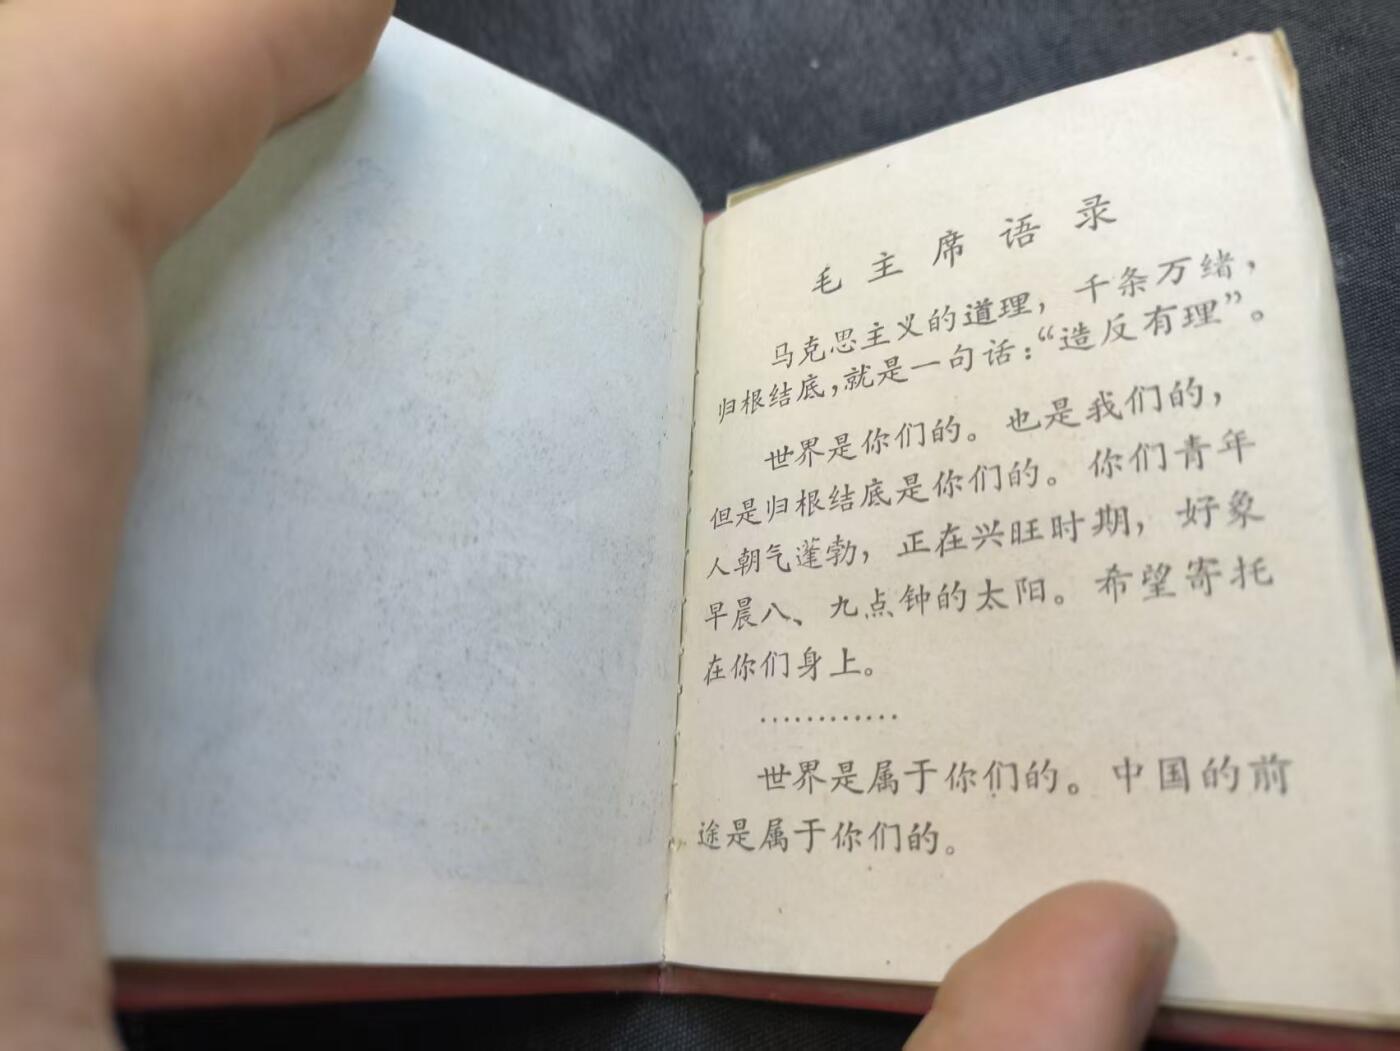 毛主席语录
马克思主义的道理，千条万绪，
归根结底，就是一句话：“造反有理”。
世界是你们的。也是我们的，
但是归根结底是你们的。你们青年
人朝气蓬勃，正在兴旺时期，好象
早晨八、九点钟的太阳。希望寄托
在你们身上。
…………
世界是属于你们的。中国的前
途是属于你们的。